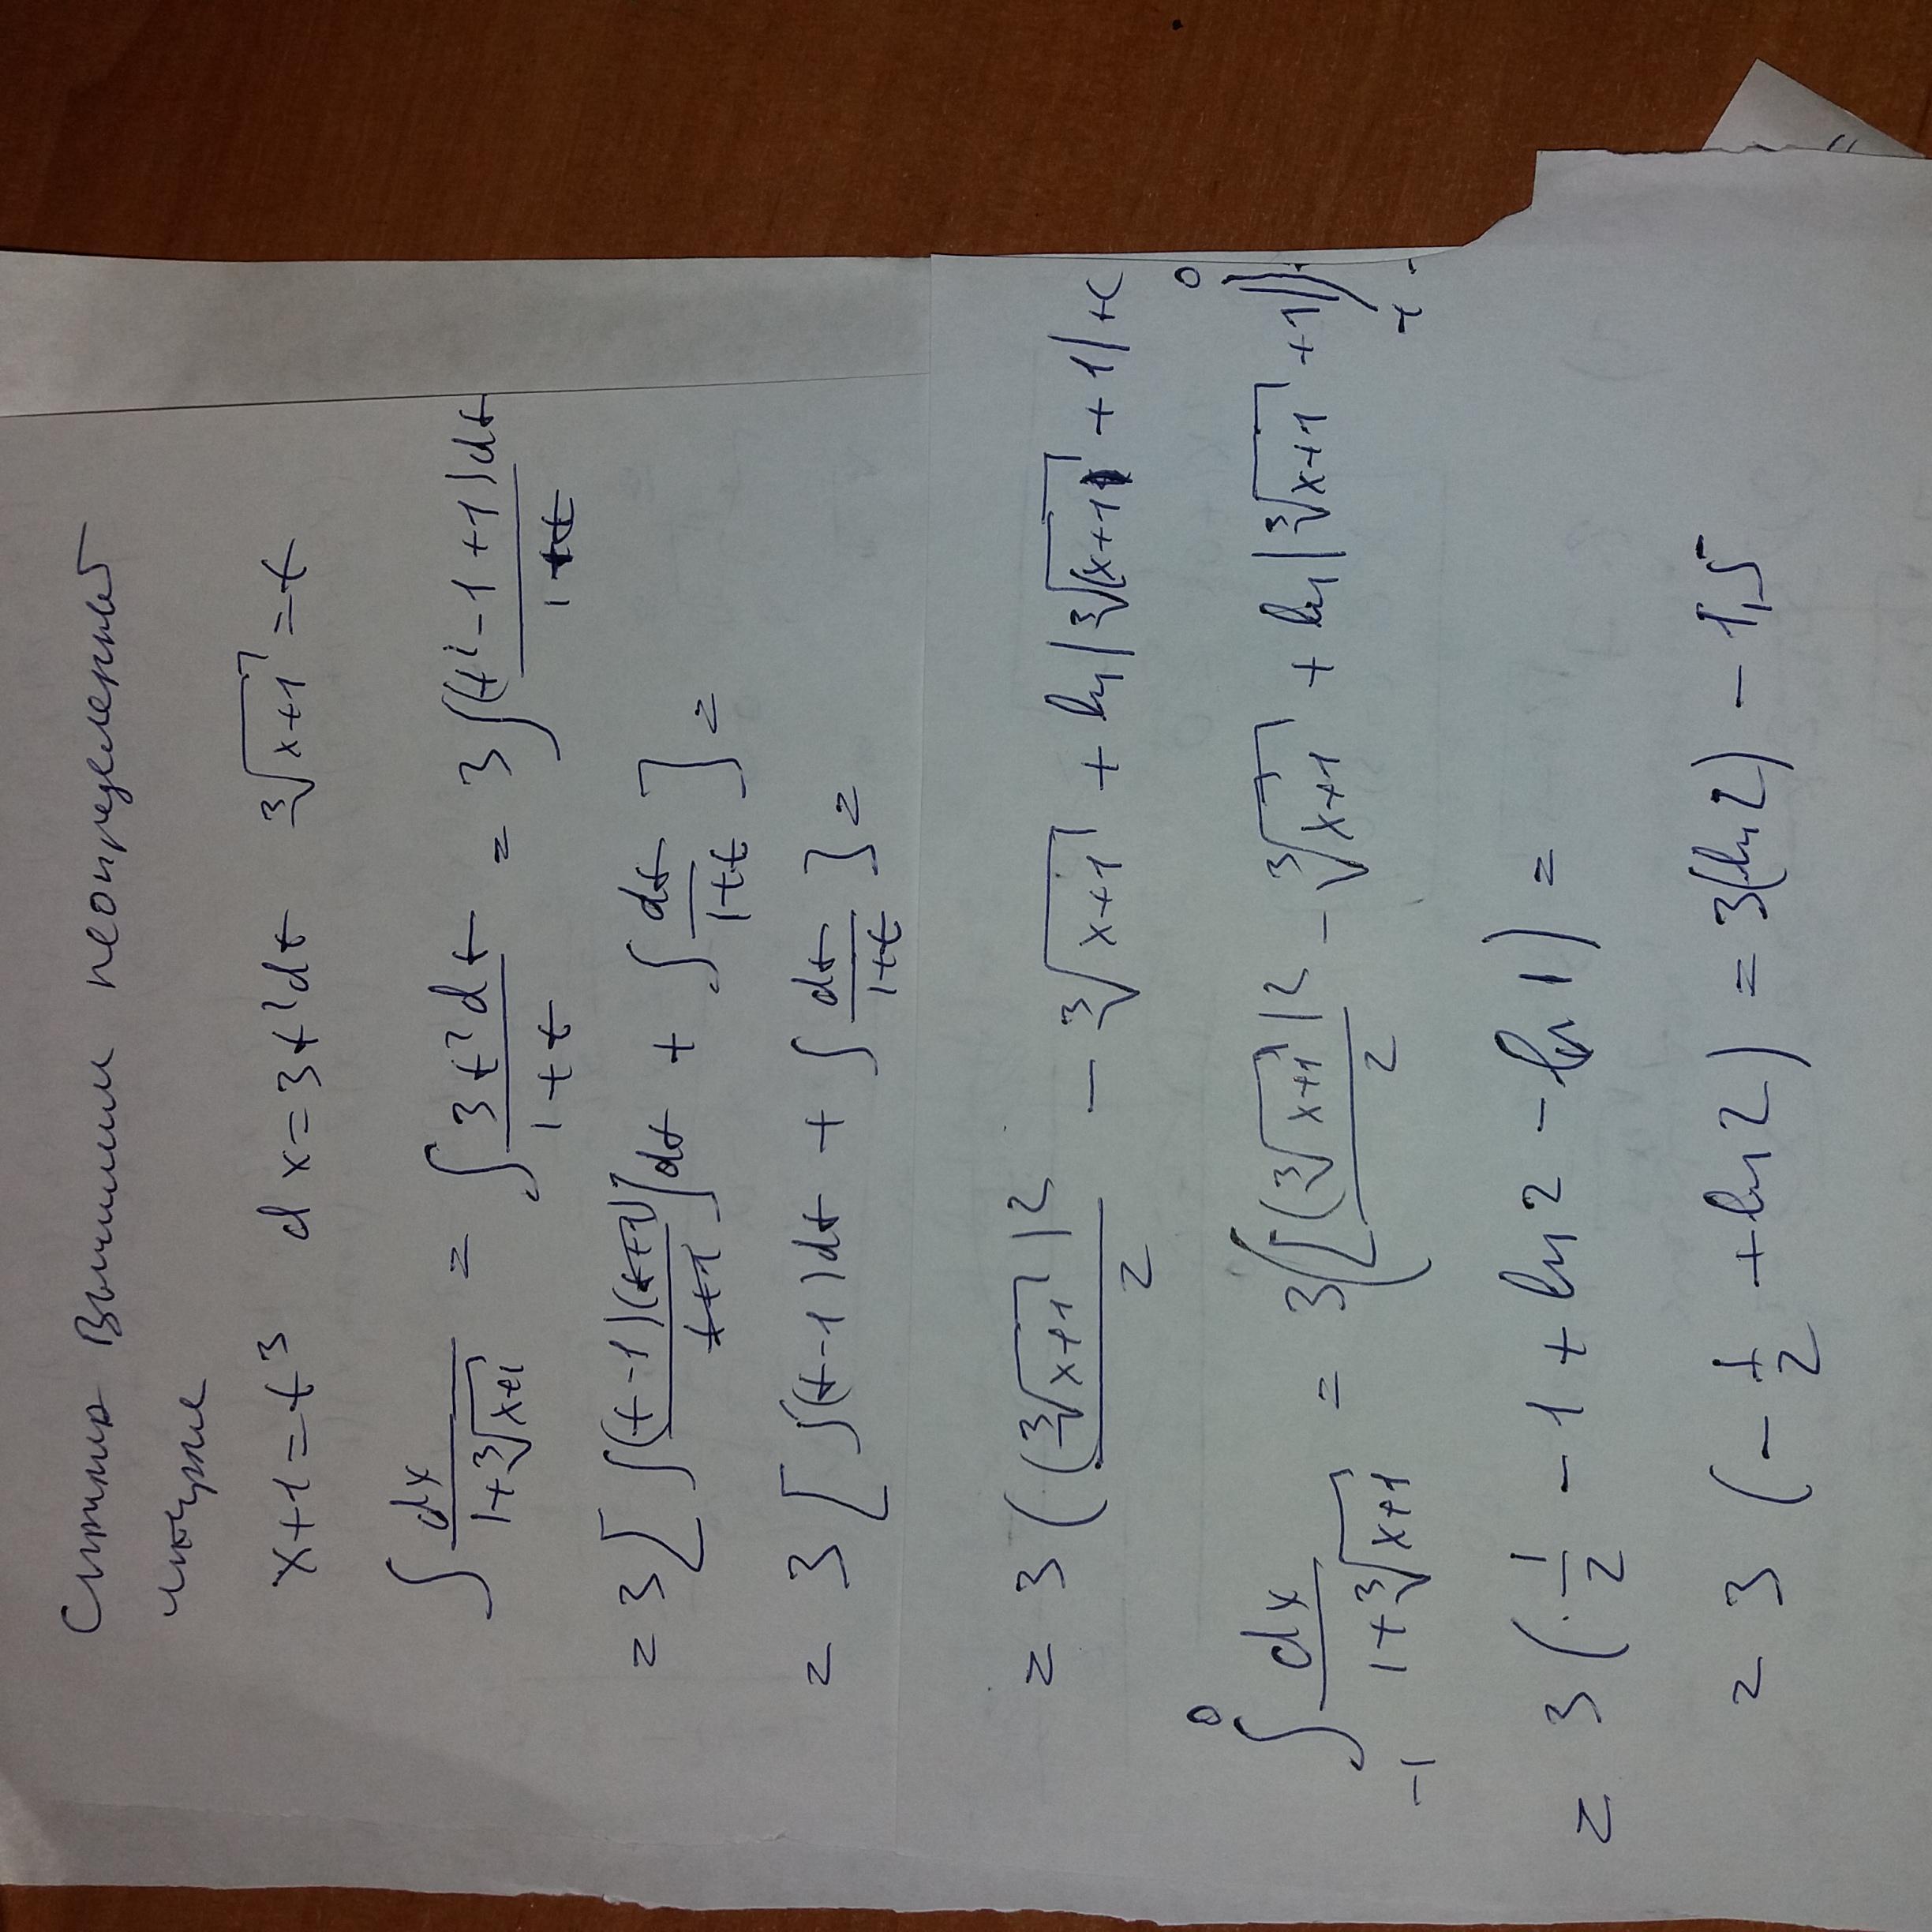 Сначала Вычислим неопределенный
интеграл
x+1=t³ dx=3t²dt ∛(x+1)=t
∫ dx/(1+∛(x+1)) = ∫ 3t²dt/(1+t) = 3∫ (t²-1+1)dt/(1+t)
=3[∫ (t-1)(t+1)/(t+1) dt + ∫ dt/(1+t)] =
= 3[∫(t-1)dt + ∫ dt/(1+t)] =
= 3((∛(x+1))²/2 - ∛(x+1) + ln|∛(x+1) + 1|+c
∫₋₁⁰ dx/(1+∛(x+1)) = 3([(∛(x+1))²/2 - ∛(x+1) + ln|∛(x+1) + 1|)|₋₁⁰
= 3(1/2 - 1 + ln2 - ln1) =
= 3(-1/2 + ln2) = 3(ln2) - 1,5